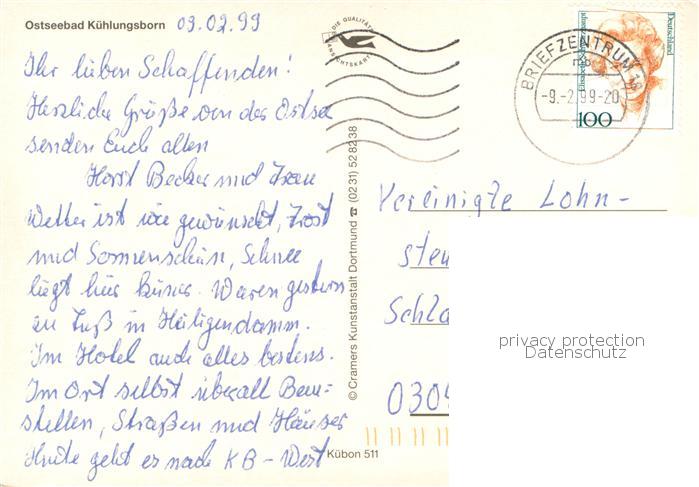 Ostseebad Kühlungsborn 09.02.99
DIE QUALITÄTS
ANSICHTSKARTE
Ihr lieben Schaffenden!
Herzliche Grüße von der Ostsee
senden Euch allen
Horst Becker und Frau
Wetter ist wie gewünscht, Frost
und Sonnenschein, Schnee
liegt hier keiner. Waren gestern
zu Fuß in Heiligendamm.
Im Hotel auch alles bestens.
Im Ort selbst überall Bau-
stellen, Straßen und Häuser
Heute geht es nach KB - West
© Cramers Kunstanstalt Dortmund ☎ (0231) 528238
Kübon 511
BRIEFZENTRUM 18
mb
-9.-2.99-20
Deutschland
100
Vereinigte Lohn-
steu
Schla
0304
privacy protection
Datenschutz